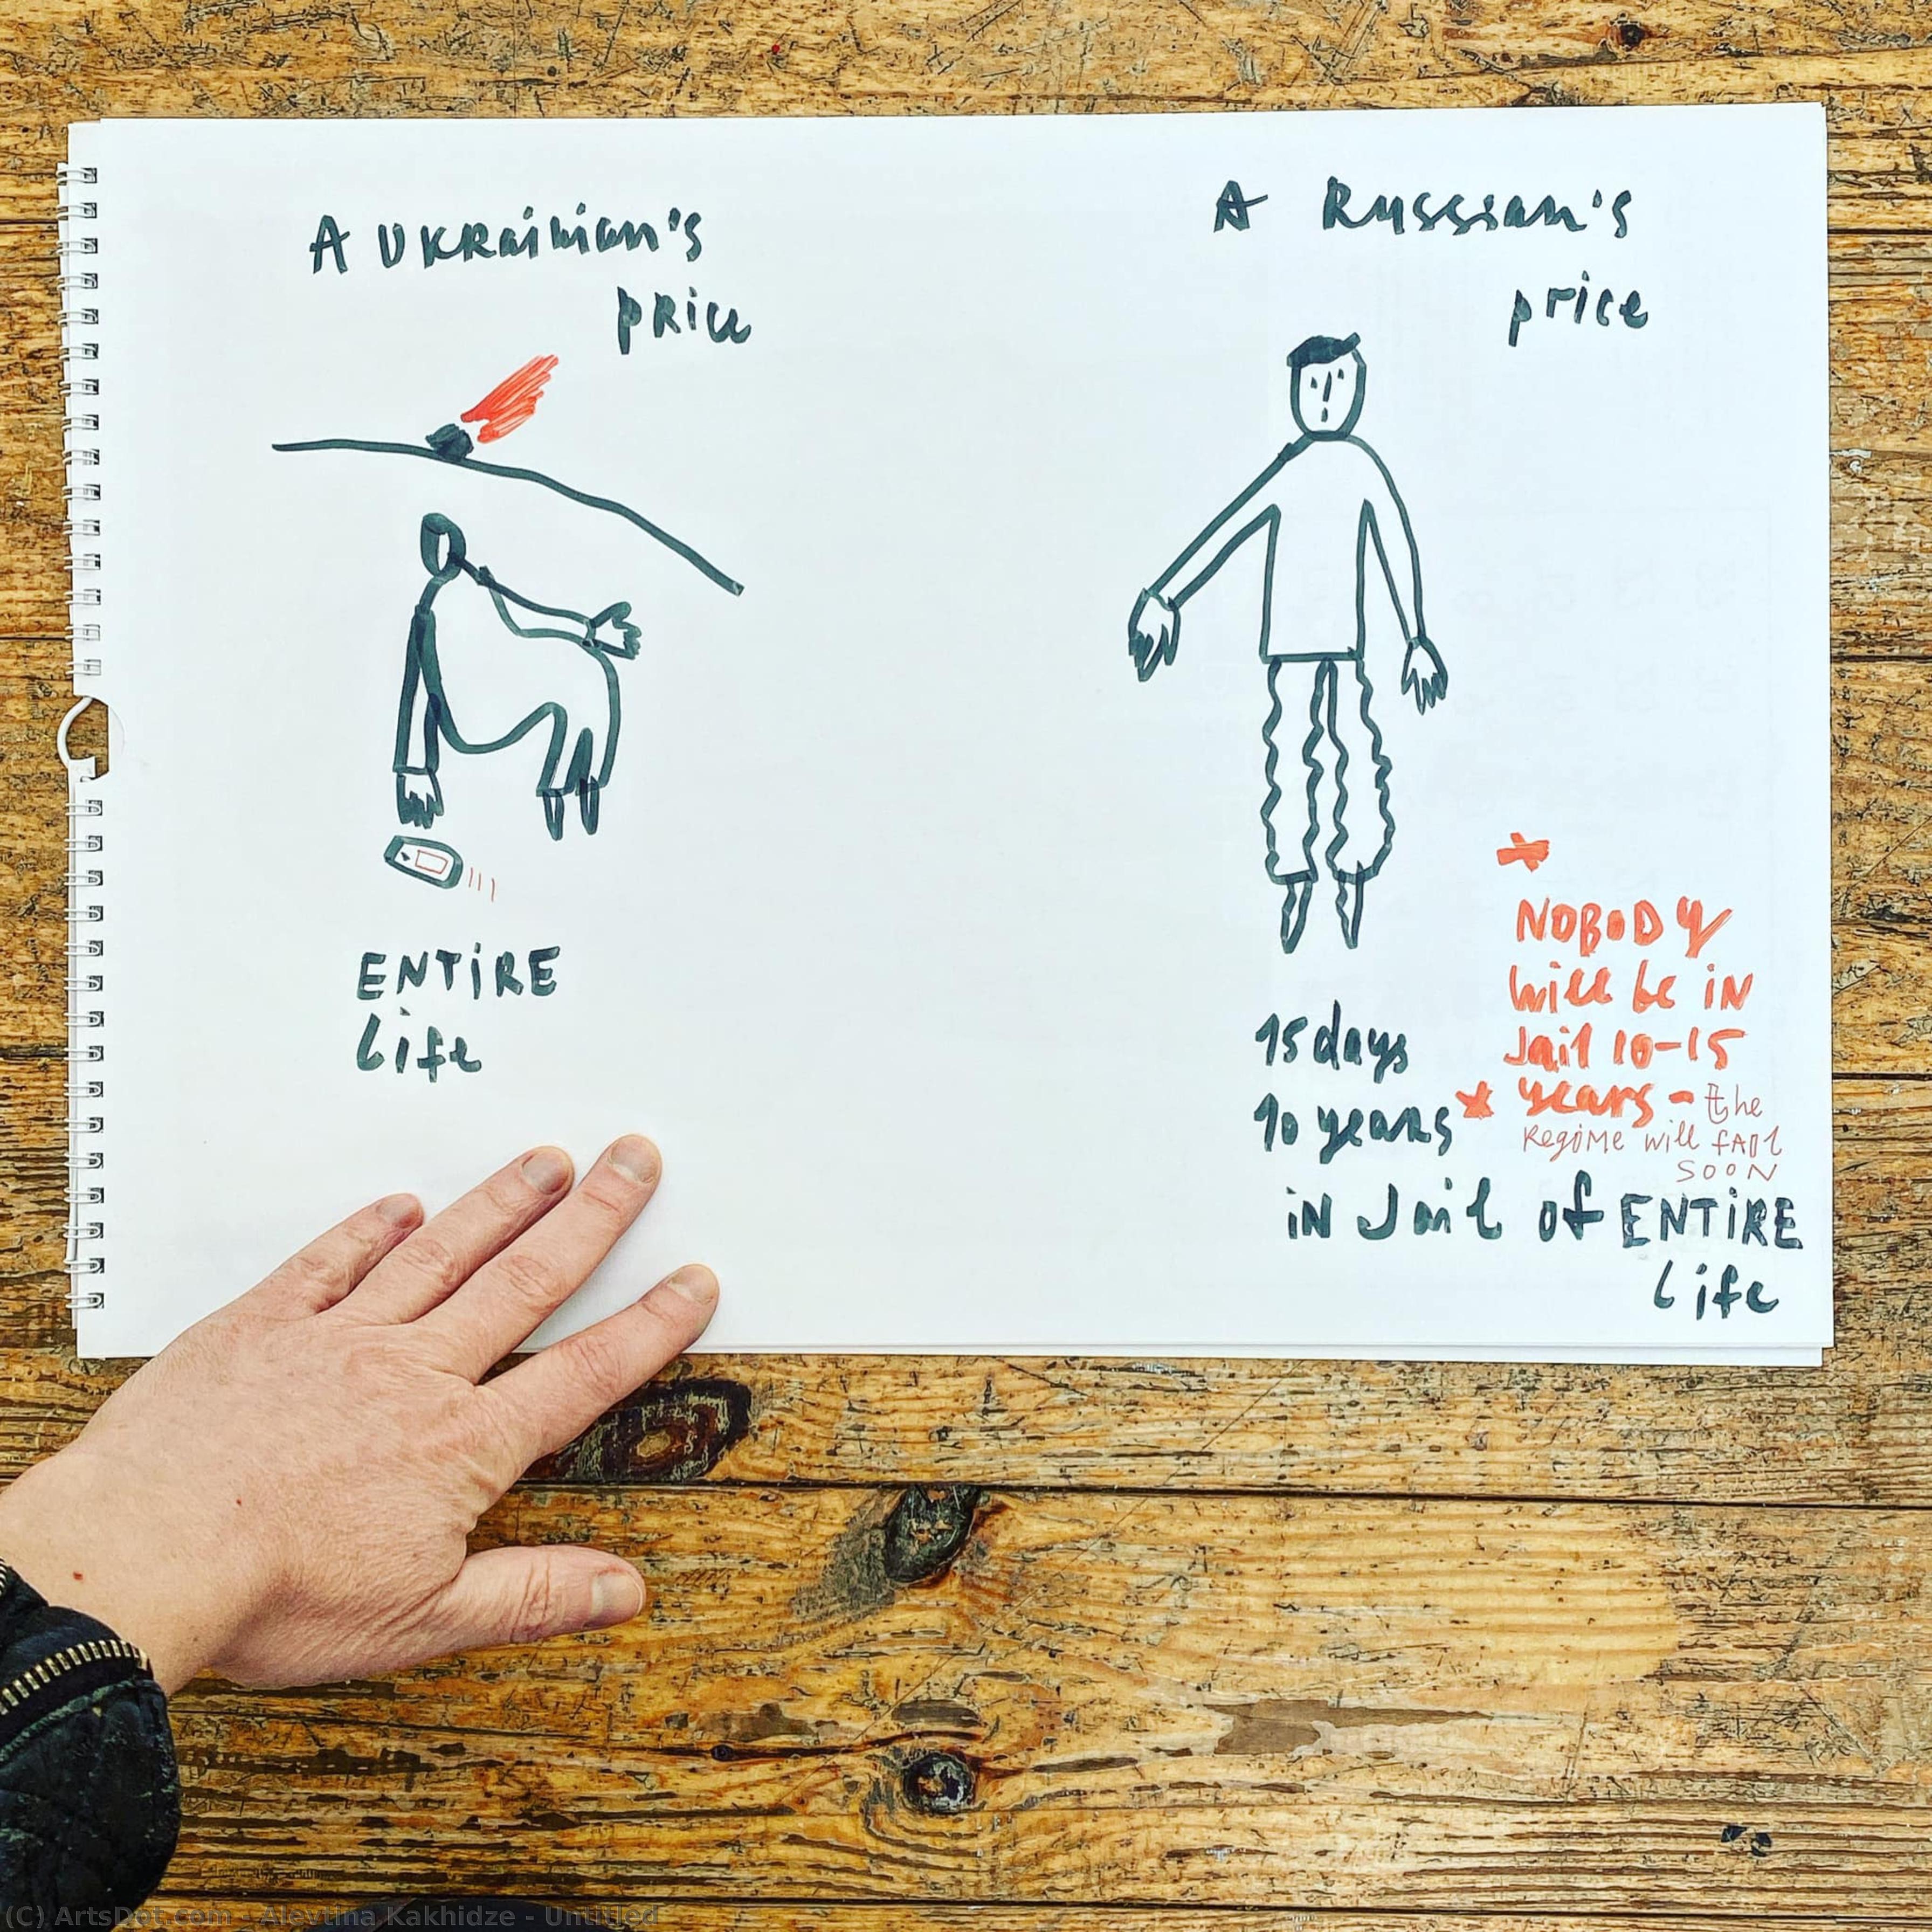 A UKRainian's
pRice
A Russsian's
price
ENTiRE
life
15 days
10 years *
iN Jail of ENTiRE
life
*
NOBODY
will be iN
Jail 10-15
years - the
RegiMe will fAll
SOON
(C) ArtsDot.com - Alevtina Kakhidze - Untitled